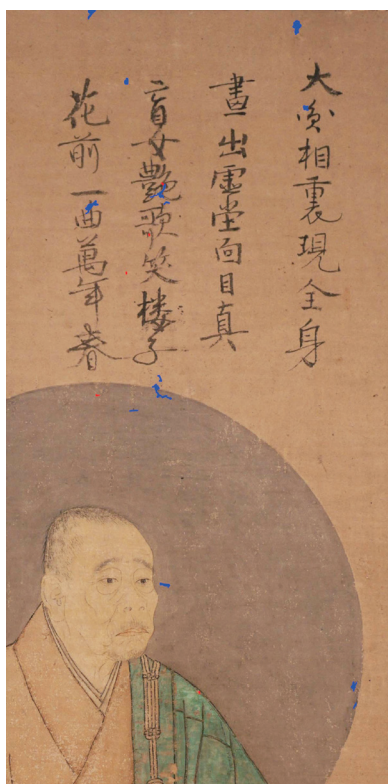 大圓相裏現全身
畫出虛堂面目真
盲女艶歌笑楼子
花前一曲萬年春